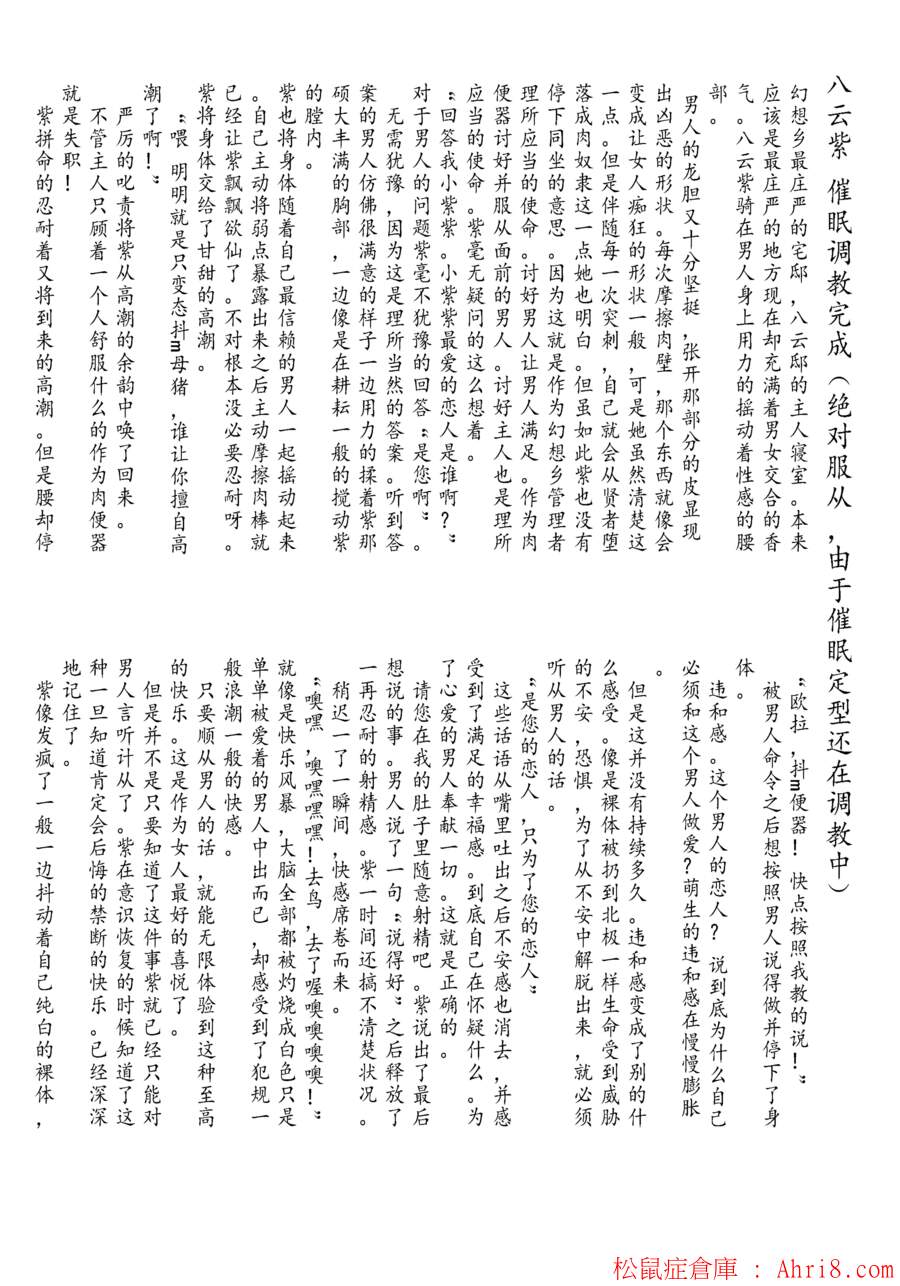 八云紫 催眠调教完成（绝对服从，由于催眠定型还在调教中）
幻想乡最庄严的宅邸，八云邸的主人寝室。本来
应该是最庄严的地方现在却充满着男女交合的香
气。八云紫骑在男人身上用力的摇动着性感的腰
部。
男人的龙胆又十分坚挺，张开那部分的皮显现
出凶恶的形状。每次摩擦肉壁，那个东西就像会
变成让女人痴狂的形状一般，可是她虽然清楚这
一点。但是伴随每一次突刺，自己就会从贤者堕
落成肉奴隶这一点她也明白。但虽如此紫也没有
停下同坐的意思。因为这就是作为幻想乡管理者
理所应当的使命。讨好男人让男人满足。作为肉
便器讨好并服从面前的男人。讨好主人也是理所
应当的使命。紫毫无疑问的这么想着。
“回答我小紫紫。小紫紫最爱的恋人是谁啊？”
对于男人的问题紫毫不犹豫的回答“是您啊”。
无需犹豫，因为这是理所当然的答案。听到答
案的男人仿佛很满意的样子一边用力的揉着紫那
硕大丰满的胸部，一边像是在耕耘一般的搅动紫
的膣内。
紫也将身体随着自己最信赖的男人一起摇动起来
。自己主动将弱点暴露出来之后主动摩擦肉棒就
已经让紫飘飘欲仙了。不对根本没必要忍耐呀。
紫将身体交给了甘甜的高潮。
“喂 明明就是只变态抖m母猪，谁让你擅自高
潮了啊！”
严厉的叱责将紫从高潮的余韵中唤了回来。
不管主人只顾着一个人舒服什么的作为肉便器
就是失职！
紫拼命的忍耐着又将到来的高潮。但是腰却停
“欧拉，抖m便器！ 快点按照我教的说！”
被男人命令之后想按照男人说得做并停下了身
体。
违和感。这个男人的恋人？ 说到底为什么自己
必须和这个男人做爱？萌生的违和感在慢慢膨胀
。
但是这并没有持续多久。违和感变成了别的什
么感受。像是裸体被扔到北极一样生命受到威胁
的不安，恐惧，为了从不安中解脱出来，就必须
听从男人的话。
“是您的恋人，只为了您的恋人”
这些话语从嘴里吐出之后不安感也消去，并感
受到了满足的幸福感。到底自己在怀疑什么。为
了心爱的男人奉献一切。这就是正确的。
请您在我的肚子里随意射精吧。紫说出了最后
想说的事。男人说了一句“说得好”之后释放了
一再忍耐的射精感。紫一时间还搞不清楚状况。
稍迟了一瞬间，快感席卷而来。
“噢嘿，噢嘿嘿嘿！去鸟，去了喔噢噢噢噢！”
就像是快乐风暴，大脑全部都被灼烧成白色只是
单单被爱着的男人中出而已，却感受到了犯规一
般浪潮一般的快感。
只要顺从男人的话，就能无限体验到这种至高
的快乐。这是作为女人最好的喜悦了。
但是并不是只要知道了这件事紫就已经只能对
男人言听计从了。紫在意识恢复的时候知道了这
种一旦知道肯定会后悔的禁断的快乐。已经深深
地记住了。
紫像发疯了一般一边抖动着自己纯白的裸体，
松鼠症倉庫 : Ahri8.com